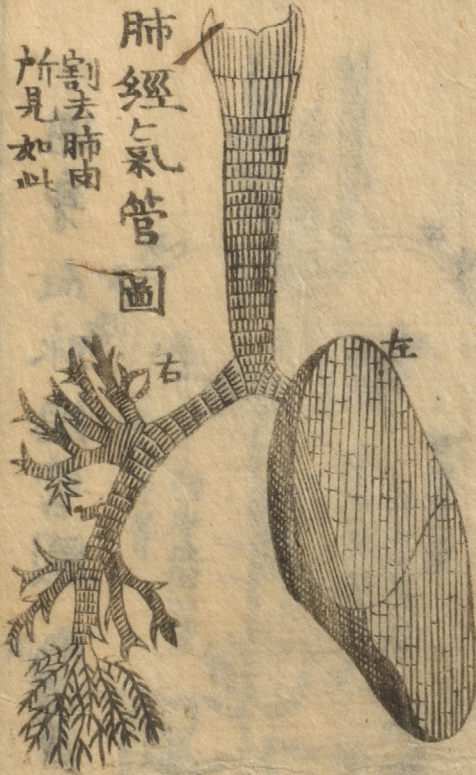 肺經氣管圖
割去肺肉
所見如此
右
左